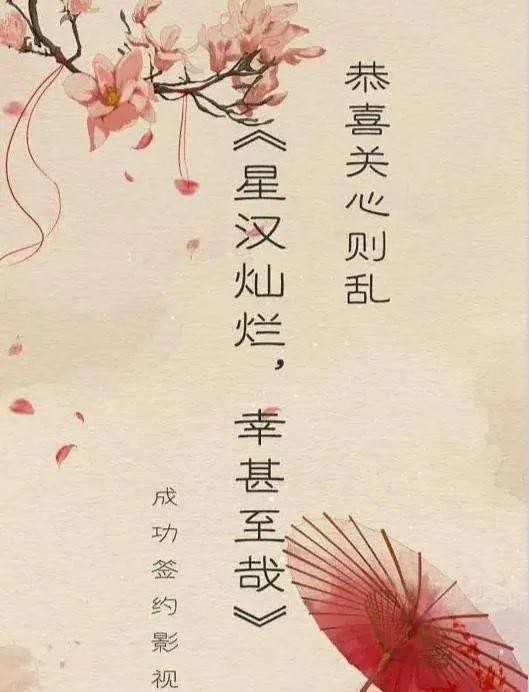 恭喜关心则乱
《星汉灿烂，幸甚至哉》
成功签约影视